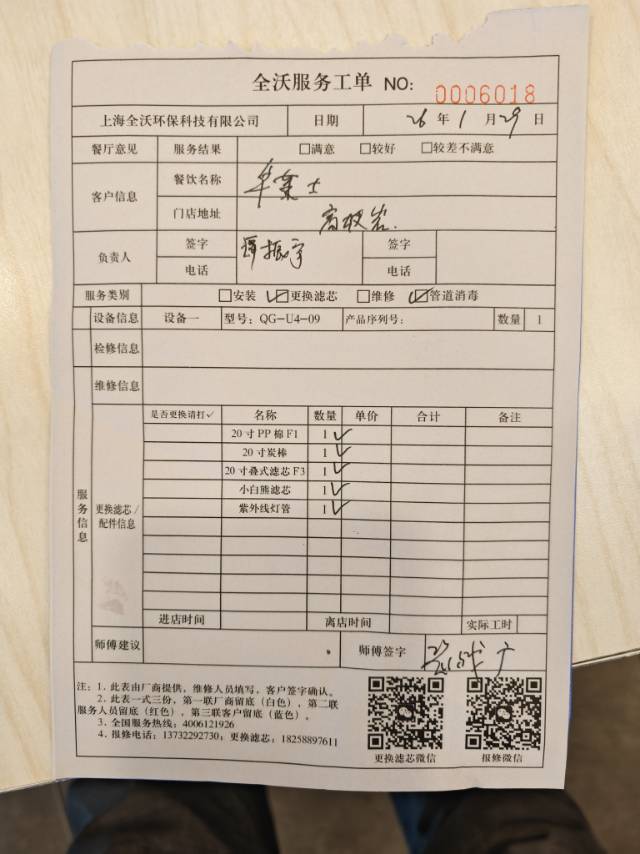 全沃服务工单 NO: 0006018
上海全沃环保科技有限公司 日期 26 年 1 月 29 日
餐厅意见 服务结果 □满意 □较好 □较差不满意
客户信息 餐饮名称 华莱士
门店地址
负责人 签字 签字
电话 电话
服务类别 □安装 ☑更换滤芯 □维修 ☑管道消毒
设备信息 设备一 型号: QG-U4-09 产品序列号: 数量 1
检修信息
维修信息
服务信息
更换滤芯/配件信息
是否更换请打✓ 名称 数量 单价 合计 备注
20寸PP棉F1 1 ✓
20寸炭棒 1 ✓
20寸叠式滤芯F3 1 ✓
小白熊滤芯 1 ✓
紫外线灯管 1 ✓
进店时间 离店时间 实际工时
师傅建议 师傅签字
注: 1. 此表由厂商提供, 维修人员填写, 客户签字确认。
2. 此表一式三份, 第一联厂商留底(白色), 第二联
服务人员留底(红色), 第三联客户留底(蓝色)。
3. 全国服务热线: 4006121926
4. 报修电话: 13732292730; 更换滤芯: 18258897611
更换滤芯微信 报修微信